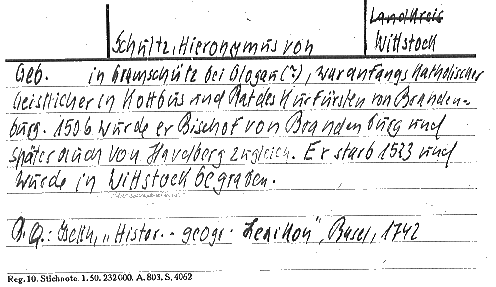 Landkreis
Schultz, Hieronymus von Wittstock
Geb. in Gramschütz bei Glogau (?), war anfangs Katholischer
Geistlicher in Kottbus und Rat des Kurfürsten von Branden-
burg. 1506 wurde er Bischof von Brandenburg und
später auch von Havelberg zugleich. Er starb 1523 und
wurde in Wittstock begraben.
Iselin, "Histor.- geogr. Lexikon", Basel, 1742
Reg. 10. Stichnote. 1. 50. 232000. A. 803. S. 4062